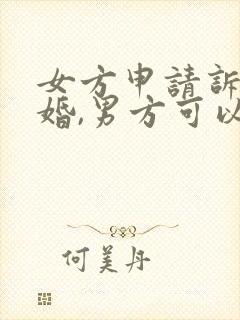 女方申請訴
婚,男方可以
何美丹